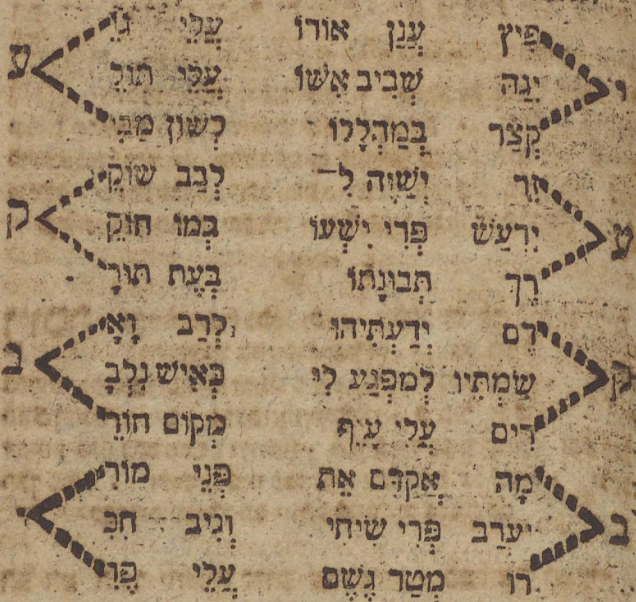 פיץ ענן אורו עלי גו
י יגה שביב אשו עלי תול ע
קצר במהללו לשון מבי
זר ישוה ל לבב שוק
ט ירעש פרי ישעו כמו חוק ק
רך תבונתו בעת תור
דם ידעתיהו לרב וא
ק שמתיו למפגע לי כאיש נלב ב
דים עלי עיף מקום חור
מה אקדם את פני מור
ב יערב פרי שיחי וניב חכ י
רו מטר גשם עלי פר